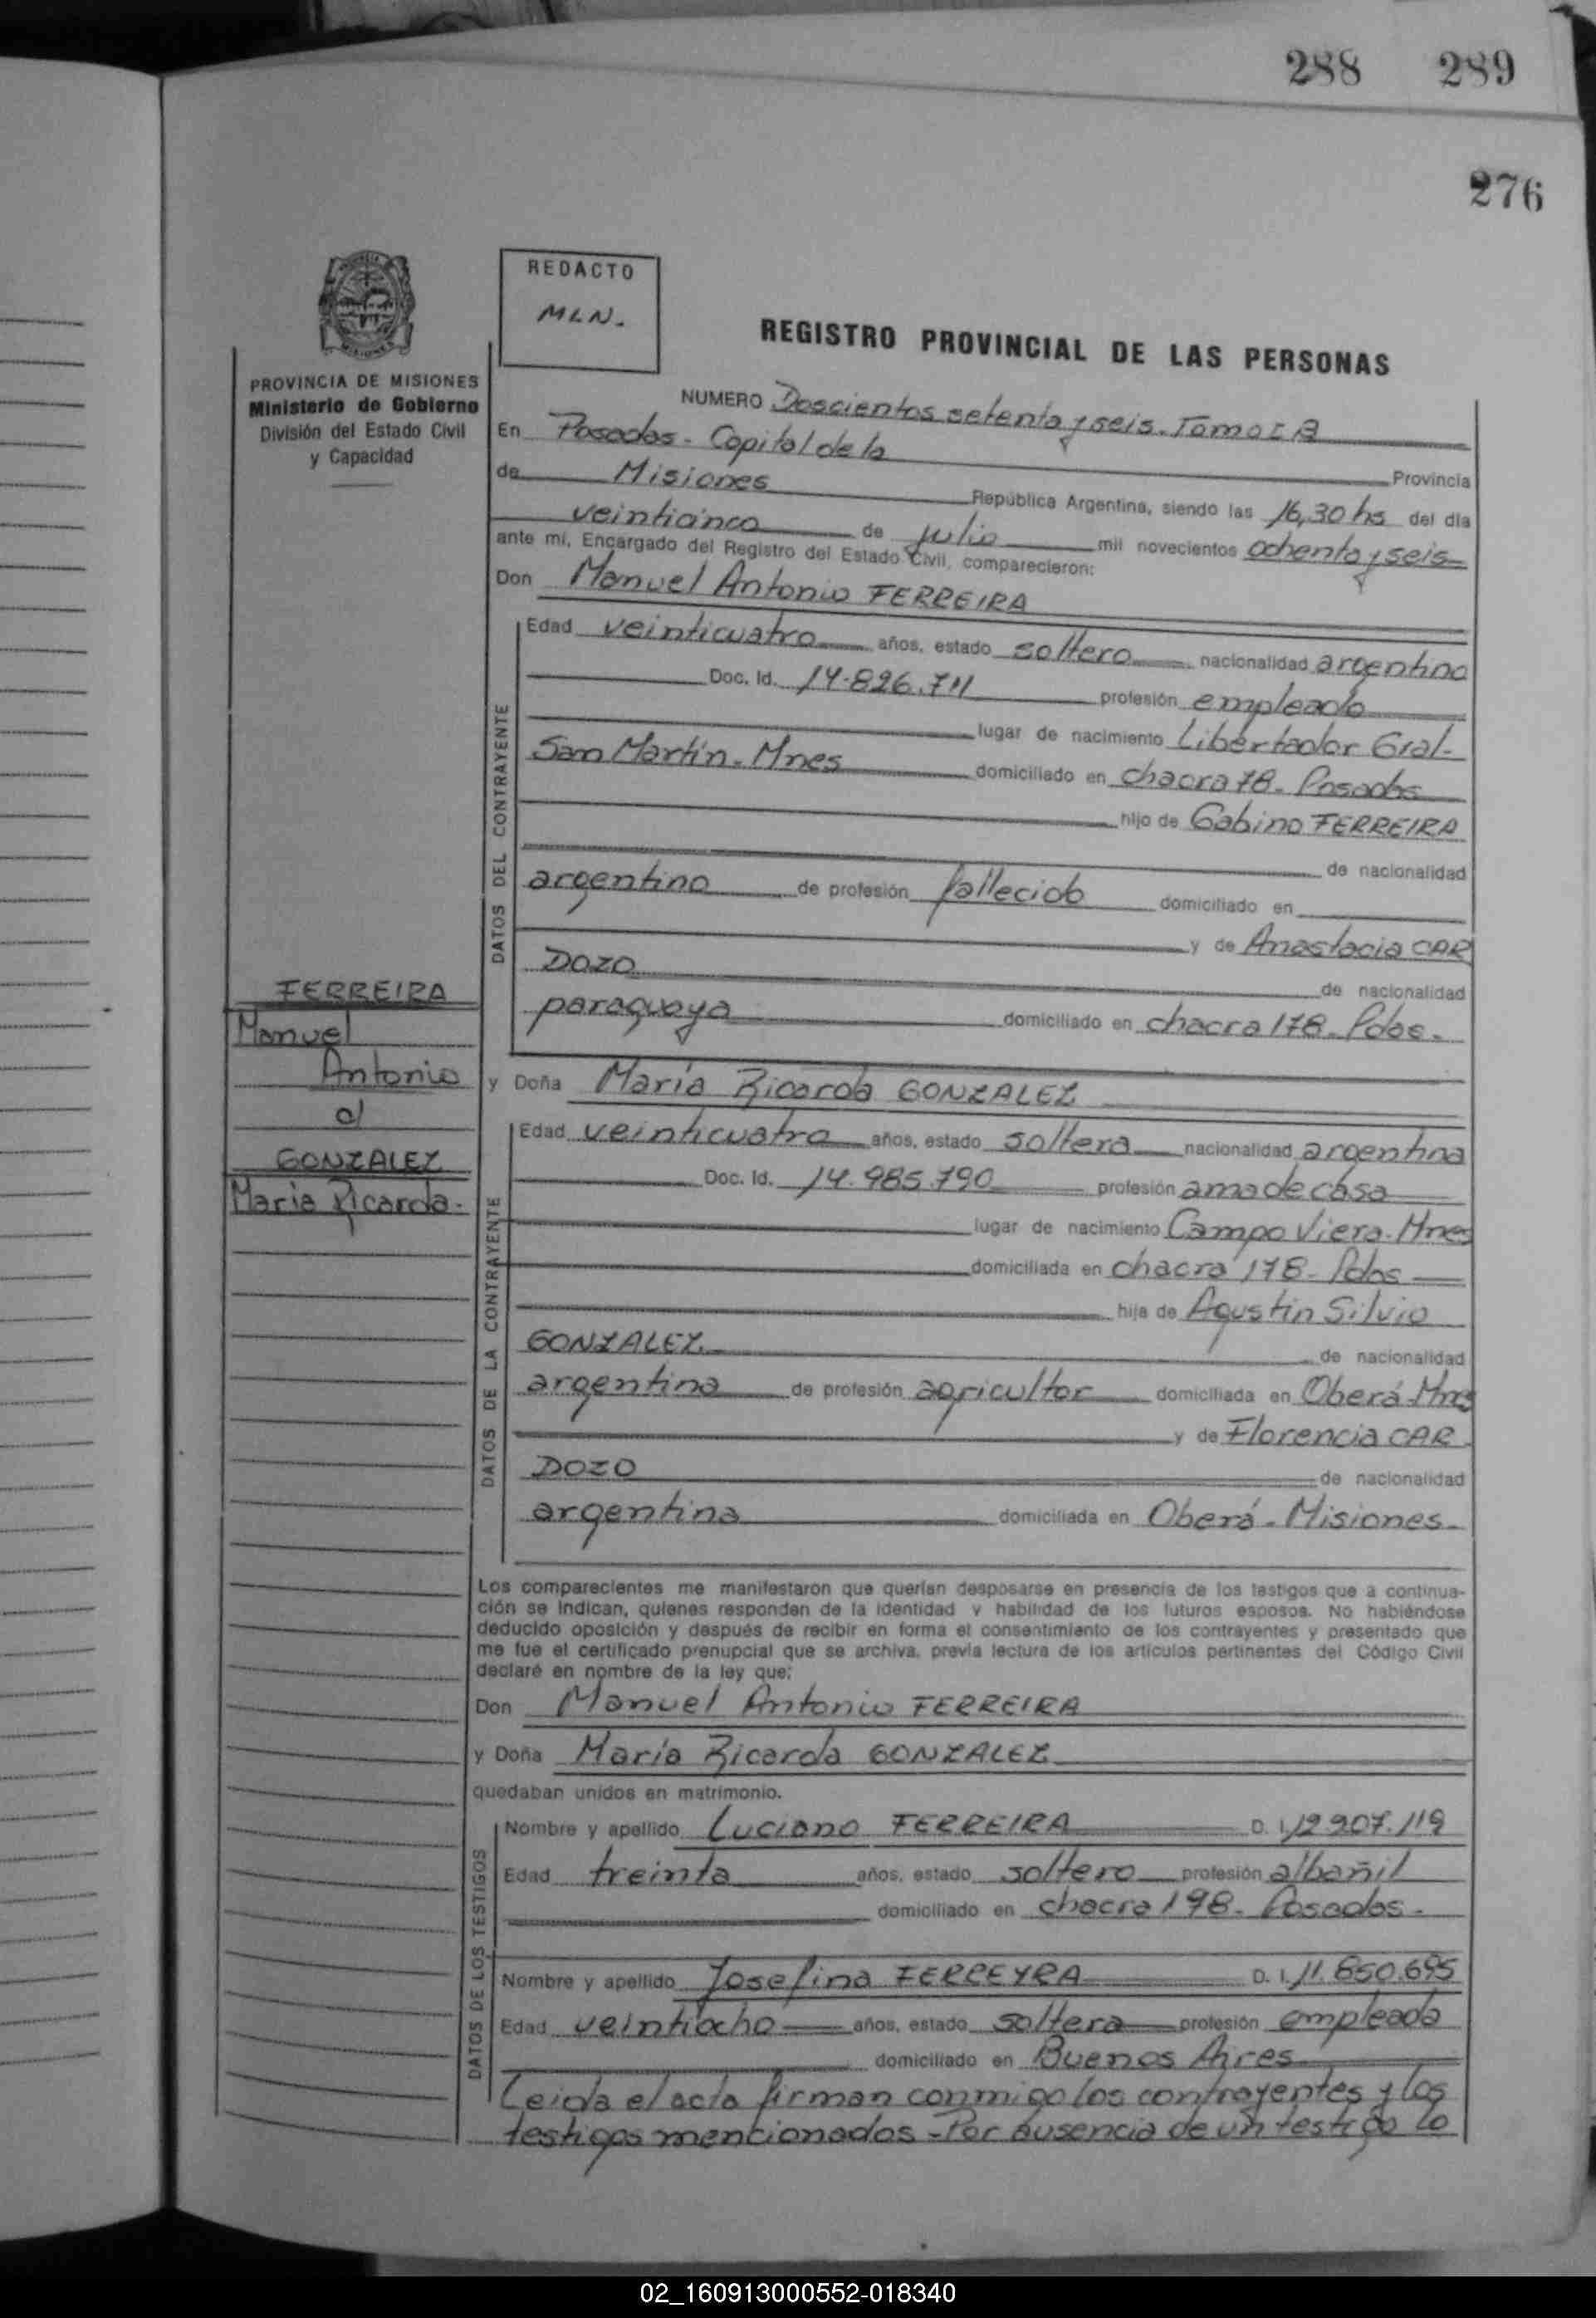 288 289
276
REDACTO
MLN.
REGISTRO PROVINCIAL DE LAS PERSONAS
PROVINCIA DE MISIONES
Ministerio de Gobierno
División del Estado Civil
y Capacidad
NUMERO Doscientos setenta y seis. Tomo I B
En Posadas - Capital de la Provincia
de Misiones República Argentina, siendo las 16,30 hs del día
veinticinco de julio mil novecientos ochenta y seis
ante mí, Encargado del Registro del Estado Civil, comparecieron:
Don Manuel Antonio FERREIRA
DATOS DEL CONTRAYENTE
Edad veinticuatro años, estado soltero nacionalidad argentino
Doc. Id. 14.826.711 profesión empleado
lugar de nacimiento Libertador Gral.
San Martín. Mnes domiciliado en chacra 78. Posadas
hijo de Gabino FERREIRA
de nacionalidad
argentino de profesión fallecido domiciliado en
y de Anastacia CAR
DOZO
de nacionalidad
paraguaya domiciliado en chacra 178. Pdas.
FERREIRA
Manuel
Antonio
c/
GONZALEZ
María Ricarda.
y Doña María Ricarda GONZALEZ
DATOS DE LA CONTRAYENTE
Edad veinticuatro años, estado soltera nacionalidad argentina
Doc. Id. 14.985.790 profesión ama de casa
lugar de nacimiento Campo Viera. Mnes
domiciliada en chacra 178. Pdas
hija de Agustin Silvio
GONZALEZ de nacionalidad
argentina de profesión agricultor domiciliada en Oberá-Mnes
y de Florencia CAR
DOZO de nacionalidad
argentina domiciliada en Oberá - Misiones.
Los comparecientes me manifestaron que querían desposarse en presencia de los testigos que a continua-
ción se indican, quienes responden de la identidad y habilidad de los futuros esposos. No habiéndose
deducido oposición y después de recibir en forma el consentimiento de los contrayentes y presentado que
me fue el certificado prenupcial que se archiva, previa lectura de los artículos pertinentes del Código Civil
declaré en nombre de la ley que:
Don Manuel Antonio FERREIRA
y Doña María Ricarda GONZALEZ
quedaban unidos en matrimonio.
DATOS DE LOS TESTIGOS
Nombre y apellido Luciano FERREIRA D. I. 12.907.119
Edad treinta años, estado soltero profesión albañil
domiciliado en chacra 198. Posadas.
Nombre y apellido Josefina FERREYRA D. I. 11.850.695
Edad veintiocho años, estado soltera profesión empleada
domiciliado en Buenos Aires
Leida el acta firman conmigo los contrayentes y los
testigos mencionados - Por ausencia de un testigo lo
02_160913000552-018340